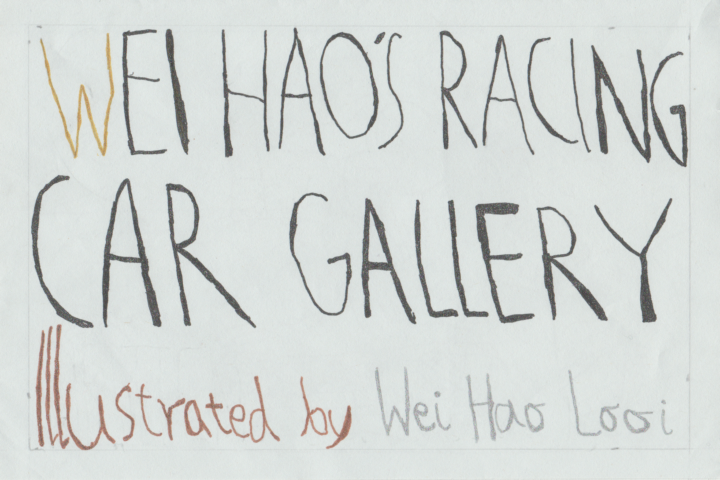 WEI HAO'S RACING
CAR GALLERY
Illustrated by Wei Hao Looi